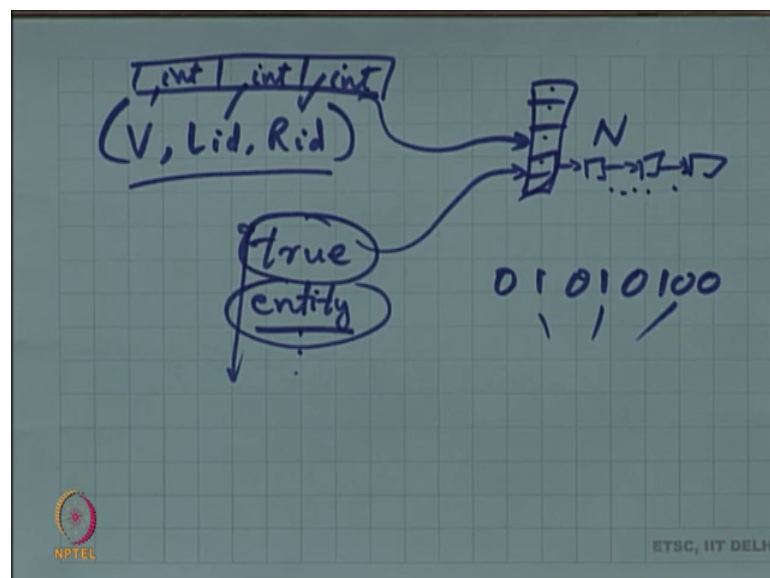 int int int
(V, Lid, Rid)
N
true
entity
01010100
NPTEL
ETSC, IIT DELH